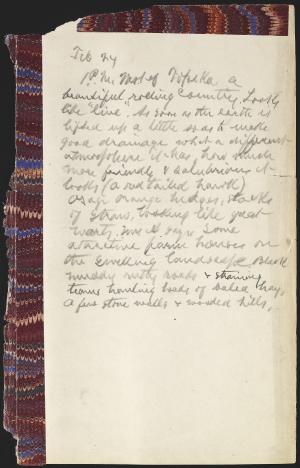 Feb 24
West of Topeka a
beautiful, rolling country. Looks
like "live". As soon as the earth is
lifted up a little so as to make
good drainage what a different
atmosphere it has, how much
more friendly & salubrious it
looks (a red tailed hawk)
Osage orange hedges, stacks
of straw, looking like great
warts,
attractive farm houses on
the smiling landscape, black
muddy rutty roads & straining
teams hauling loads of baled hay,
a few stone walls & wooded hills,